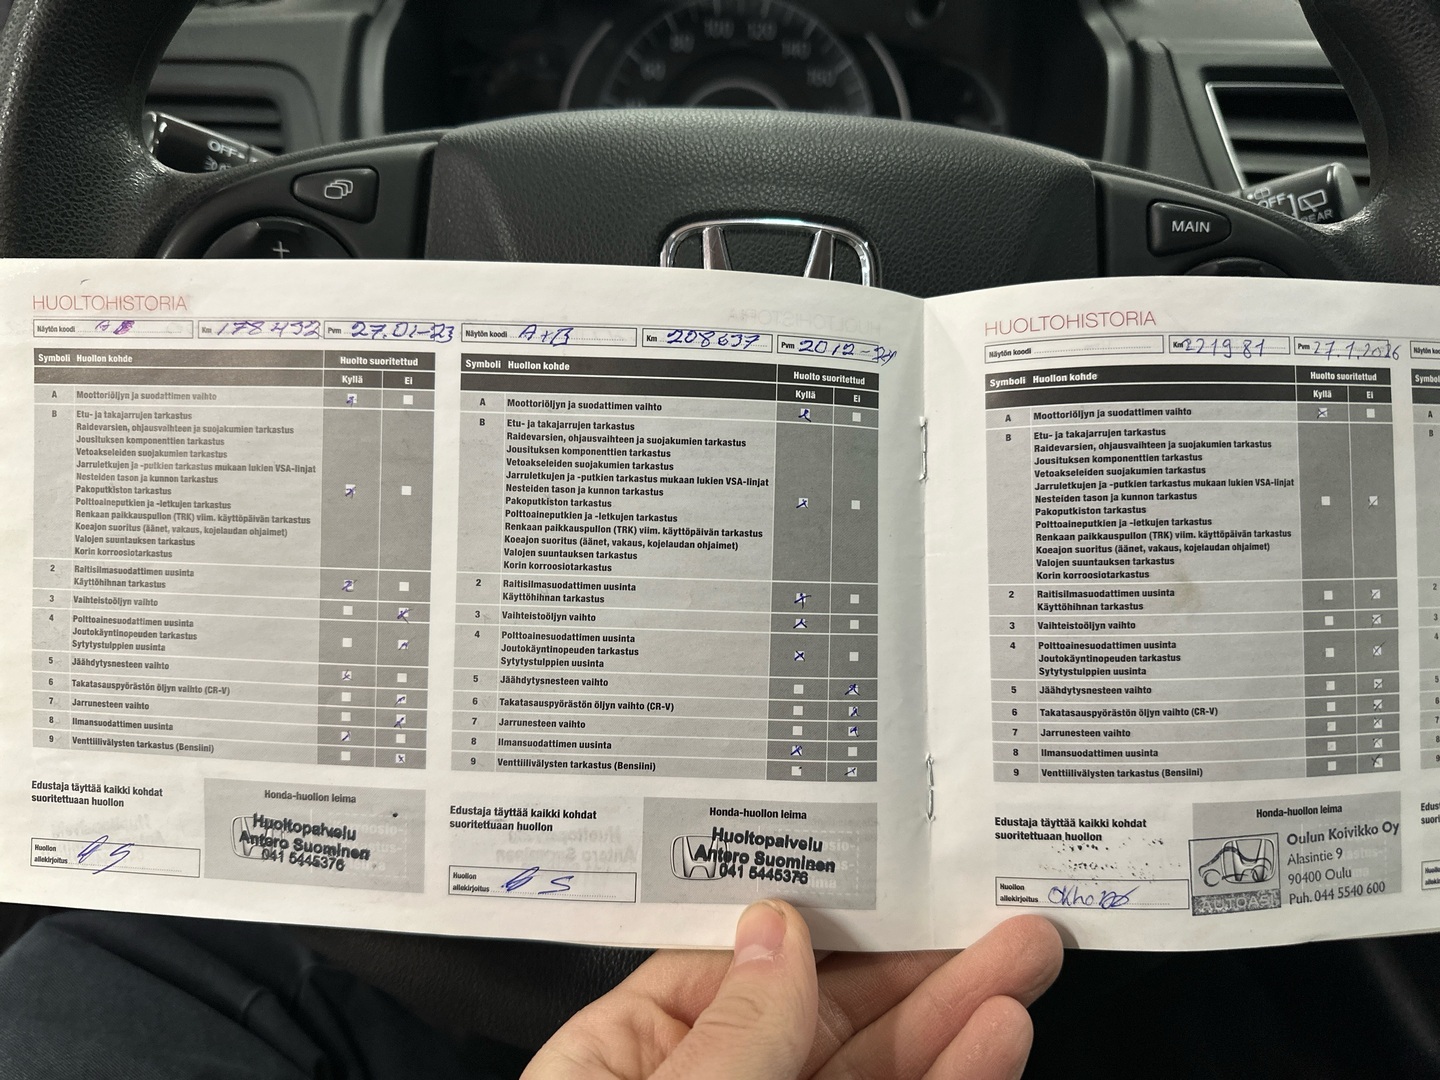 OFF
MAIN
OFF
REAR
80
100
120
140
160
60
HUOLTOHISTORIA
Näytön koodi Km 178 432 Pvm 27.01-23
Symboli Huollon kohde Huolto suoritettud
Kyllä Ei
A Moottoriöljyn ja suodattimen vaihto
B Etu- ja takajarrujen tarkastus
Raidevarsien, ohjausvaihteen ja suojakumien tarkastus
Jousituksen komponenttien tarkastus
Vetoakseleiden suojakumien tarkastus
Jarruletkujen ja -putkien tarkastus mukaan lukien VSA-linjat
Nesteiden tason ja kunnon tarkastus
Pakoputkiston tarkastus
Polttoaineputkien ja -letkujen tarkastus
Renkaan paikkauspullon (TRK) viim. käyttöpäivän tarkastus
Koeajon suoritus (äänet, vakaus, kojelaudan ohjaimet)
Valojen suuntauksen tarkastus
Korin korroosiotarkastus
2 Raitisilmasuodattimen uusinta
Käyttöhihnan tarkastus
3 Vaihteistoöljyn vaihto
4 Polttoainesuodattimen uusinta
Joutokäyntinopeuden tarkastus
Sytytystulppien uusinta
5 Jäähdytysnesteen vaihto
6 Takatasauspyörästön öljyn vaihto (CR-V)
7 Jarrunesteen vaihto
8 Ilmansuodattimen uusinta
9 Venttiilivälysten tarkastus (Bensiini)
Edustaja täyttää kaikki kohdat
suoritettuaan huollon
Huollon
allekirjoitus
Honda-huollon leima
Huoltopalvelu
Antero Suominen
041 5445376
Näytön koodi A+B Km 208637 Pvm 2012-24
Symboli Huollon kohde Huolto suoritettud
Kyllä Ei
A Moottoriöljyn ja suodattimen vaihto
B Etu- ja takajarrujen tarkastus
Raidevarsien, ohjausvaihteen ja suojakumien tarkastus
Jousituksen komponenttien tarkastus
Vetoakseleiden suojakumien tarkastus
Jarruletkujen ja -putkien tarkastus mukaan lukien VSA-linjat
Nesteiden tason ja kunnon tarkastus
Pakoputkiston tarkastus
Polttoaineputkien ja -letkujen tarkastus
Renkaan paikkauspullon (TRK) viim. käyttöpäivän tarkastus
Koeajon suoritus (äänet, vakaus, kojelaudan ohjaimet)
Valojen suuntauksen tarkastus
Korin korroosiotarkastus
2 Raitisilmasuodattimen uusinta
Käyttöhihnan tarkastus
3 Vaihteistoöljyn vaihto
4 Polttoainesuodattimen uusinta
Joutokäyntinopeuden tarkastus
Sytytystulppien uusinta
5 Jäähdytysnesteen vaihto
6 Takatasauspyörästön öljyn vaihto (CR-V)
7 Jarrunesteen vaihto
8 Ilmansuodattimen uusinta
9 Venttiilivälysten tarkastus (Bensiini)
Edustaja täyttää kaikki kohdat
suoritettuaan huollon
Huollon
allekirjoitus
Honda-huollon leima
Huoltopalvelu
Antero Suominen
041 5445376
HUOLTOHISTORIA
Näytön koodi Km 221981 Pvm 27.1.2026
Symboli Huollon kohde Huolto suoritettud
Kyllä Ei
A Moottoriöljyn ja suodattimen vaihto
B Etu- ja takajarrujen tarkastus
Raidevarsien, ohjausvaihteen ja suojakumien tarkastus
Jousituksen komponenttien tarkastus
Vetoakseleiden suojakumien tarkastus
Jarruletkujen ja -putkien tarkastus mukaan lukien VSA-linjat
Nesteiden tason ja kunnon tarkastus
Pakoputkiston tarkastus
Polttoaineputkien ja -letkujen tarkastus
Renkaan paikkauspullon (TRK) viim. käyttöpäivän tarkastus
Koeajon suoritus (äänet, vakaus, kojelaudan ohjaimet)
Valojen suuntauksen tarkastus
Korin korroosiotarkastus
2 Raitisilmasuodattimen uusinta
Käyttöhihnan tarkastus
3 Vaihteistoöljyn vaihto
4 Polttoainesuodattimen uusinta
Joutokäyntinopeuden tarkastus
Sytytystulppien uusinta
5 Jäähdytysnesteen vaihto
6 Takatasauspyörästön öljyn vaihto (CR-V)
7 Jarrunesteen vaihto
8 Ilmansuodattimen uusinta
9 Venttiilivälysten tarkastus (Bensiini)
Edustaja täyttää kaikki kohdat
suoritettuaan huollon
Huollon
allekirjoitus
Honda-huollon leima
AUTOASI
Oulun Koivikko Oy
Alasintie 9
90400 Oulu
Puh. 044 5540 600